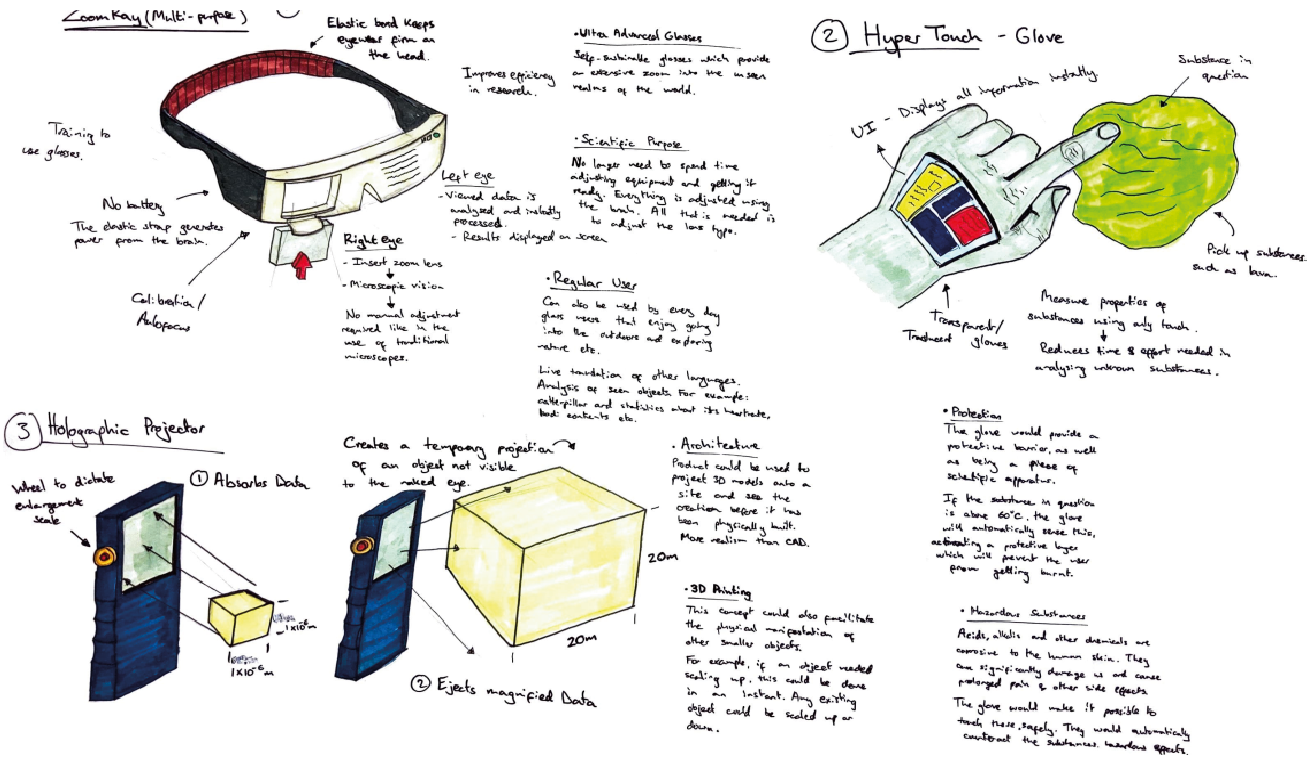 ZoomKay (Multi-purpose)
Elastic band keeps
eyewear firm on
the head.
Training to
use glasses.
No battery
The elastic strap generates
power from the brain.
Calibration/
Autofocus
Improves efficiency
in research.
Left eye
- Viewed data is
analysed and instantly
processed.
- Results displayed on screen
Right eye
- Insert zoom lens
- Microscopic vision
No manual adjustment
required like in the
use of traditional
microscopes.
• Ultra Advanced Glasses
Self-sustainable glasses which provide
an extensive zoom into the unseen
realms of the world.
• Scientific Purpose
No longer need to spend time
adjusting equipment and getting it
ready. Everything is adjusted using
the brain. All that is needed is
to adjust the lens type.
• Regular User
Can also be used by every day
glass users that enjoy going
into the outdoors and exploring
nature etc.
Live translation of other languages.
Analysis of seen objects. For example:
caterpillar and statistics about its heartrate,
body contents etc.
2 Hyper Touch - Glove
UI - Displays all information instantly.
Substance in
question
Pick up substances
such as lava.
Transparent/
Translucent gloves
Measure properties of
substances using only touch.
Reduces time & effort needed in
analysing unknown substances.
• Protection
The glove would provide a
protective barrier, as well
as being a piece of
scientific apparatus.
If the substance in question
is above 60°C, the glove
will automatically sense this,
activating a protective layer
which will prevent the user
from getting burnt.
• Hazardous Substances
Acids, alkalis and other chemicals are
corrosive to the human skin. They
can significantly damage us and cause
prolonged pain & other side effects
The glove would make it possible to
touch these, safely. They would automatically
counteract the substances hazardous effects.
3 Holographic Projector
Wheel to dictate
enlargement
scale
1 Absorbs Data
1x10⁻⁶m
1x10⁻⁶m
Creates a temporary projection
of an object not visible
to the naked eye.
20m
20m
2 Ejects magnified Data
• Architecture
Product could be used to
project 3D models onto a
site and see the
creation before it has
been physically built.
More realism than CAD.
• 3D Printing
This concept could also facilitate
the physical manifestation of
other smaller objects.
For example, if an object needed
scaling up, this could be done
in an instant. Any existing
object could be scaled up or
down.